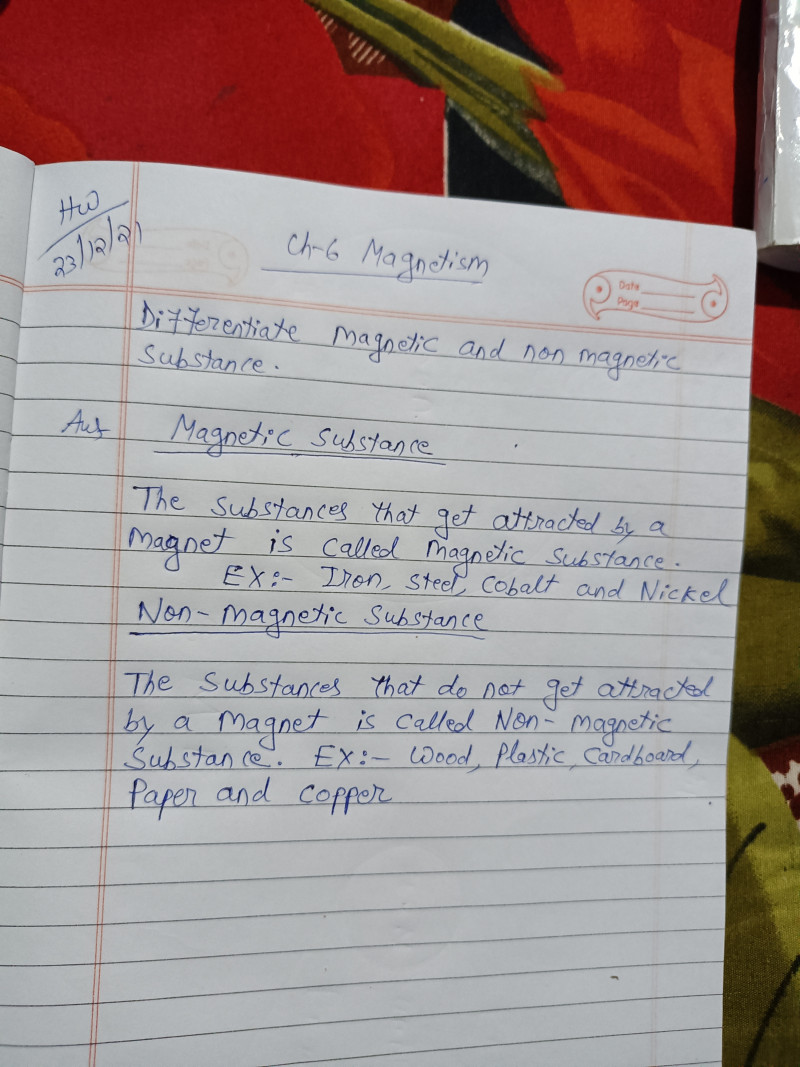 HW
23/12/21
Ch-6 Magnetism
Date
Page
Differentiate magnetic and non magnetic
substance.
Ans Magnetic Substance
The substances that get attracted by a
magnet is called magnetic substance.
EX:- Iron, steel, cobalt and Nickel
Non-magnetic Substance
The substances that do not get attracted
by a magnet is called Non-magnetic
Substance. EX:- Wood, Plastic, Cardboard,
Paper and copper